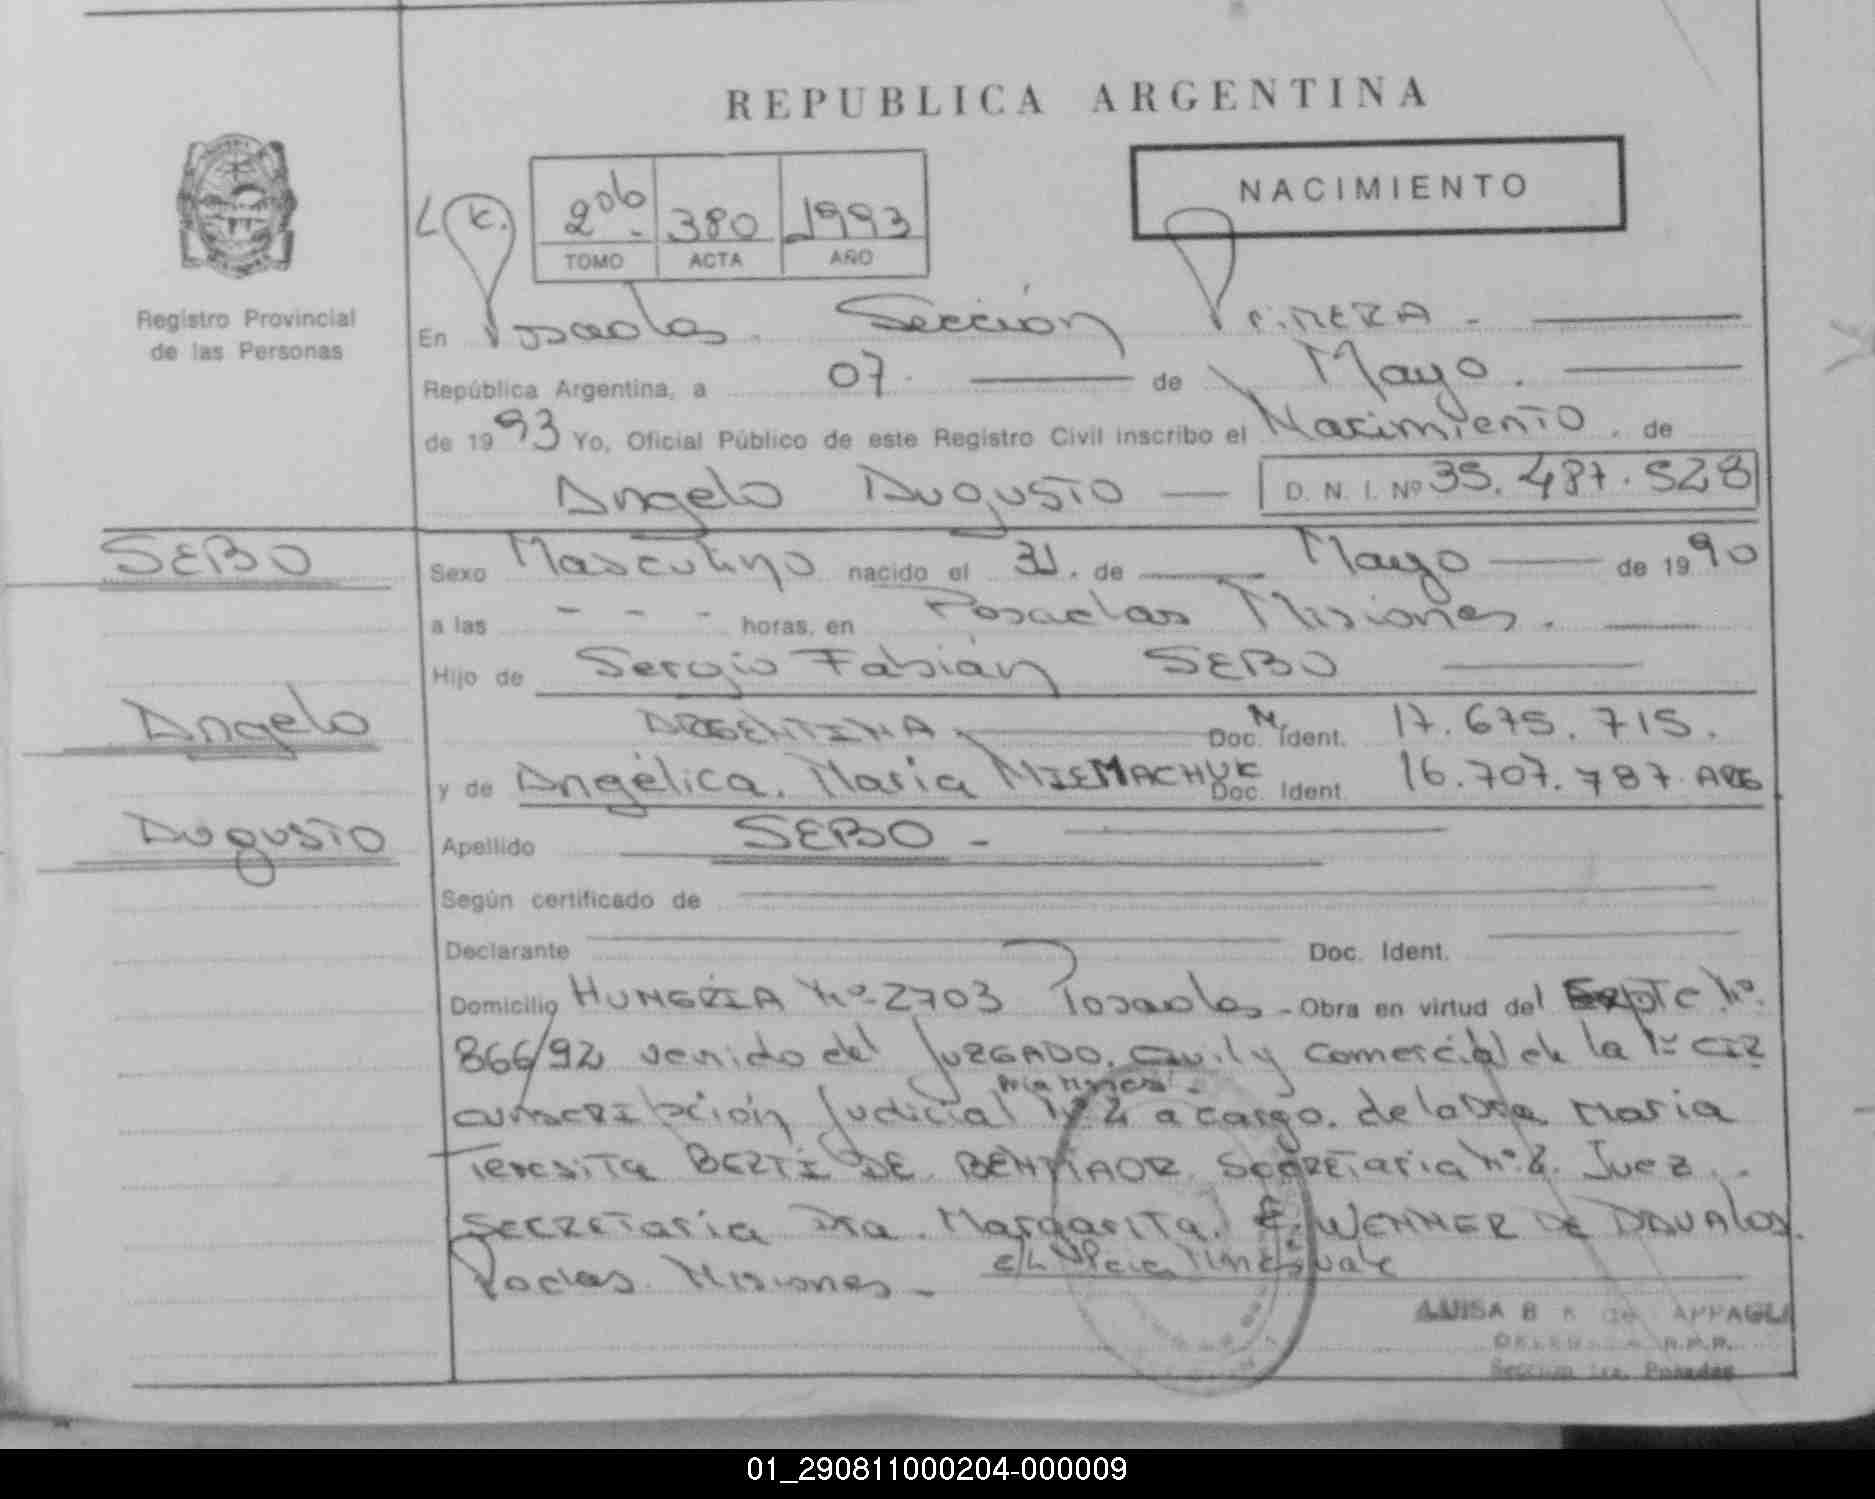 REPUBLICA ARGENTINA
NACIMIENTO
L K. 206 - 380 1993
TOMO ACTA AÑO
Registro Provincial
de las Personas
En Posadas. Sección Primera -
República Argentina, a 07. de Mayo.
de 1993 Yo, Oficial Público de este Registro Civil inscribo el Nacimiento. de
Angelo Augusto D. N. I. Nº 35.487.528
SEBO
Sexo Masculino nacido el 31. de Mayo de 1990
a las - - - horas, en Posadas Misiones.
Hijo de Sergio Fabián SEBO
Angelo
ARGENTINA Doc. N. Ident. 17.675.715.
y de Angélica. María NIEMACHUK Doc. Ident. 16.707.787. ARG
Augusto
Apellido SEBO -
Según certificado de
Declarante Doc. Ident.
Domicilio HUNGRIA Nº 2703 Posadas - Obra en virtud del Expte Nº.
866/92 venido del JUZGADO. Civil y Comercial de la 1º CIR
cunscripción Judicial Nº 2 a cargo. de la Dra Maria
Teresita BERTI DE BENMAOR Secretaria Nº 2. Juez.
Secretaria Dra. Margarita. E. WENNER DE DAVALOS.
Podas Misiones. -
E/L vale
LUISA B
Sección 1ra. Posadas
01_290811000204-000009